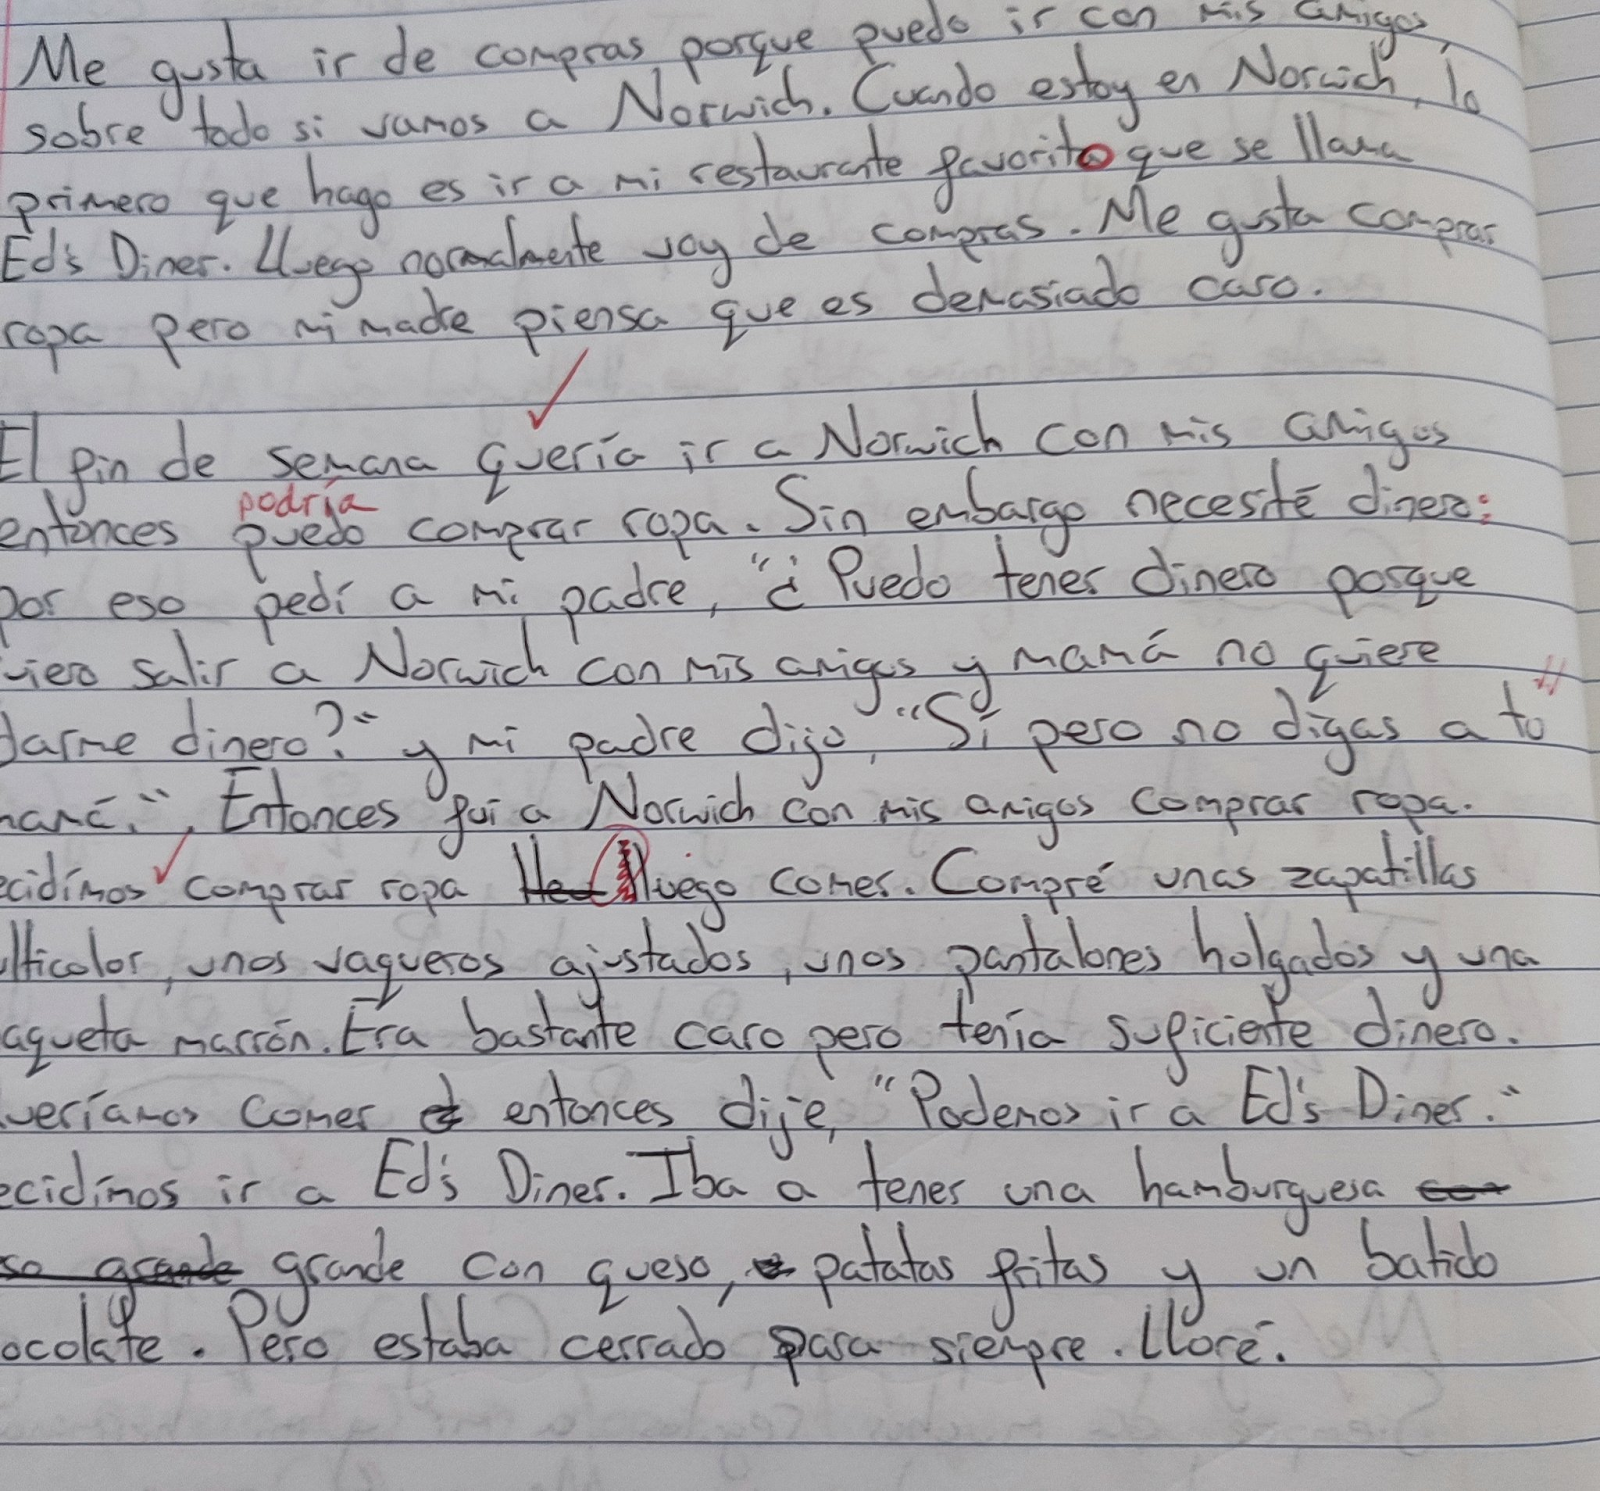 Me gusta ir de compras porque puedo ir con mis amigos,
sobre todo si vamos a Norwich. Cuando estoy en Norwich, lo
primero que hago es ir a mi restaurante favorito que se llama
Ed's Diner. Lluego normalmente voy de compras. Me gusta comprar
ropa pero mi madre piensa que es demasiado caro.
El fin de semana quería ir a Norwich con mis amigos
podría
entonces puedo comprar ropa. Sin embargo necesité dinero:
por eso pedí a mi padre, "¿Puedo tener dinero porque
uiero salir a Norwich con mis amigos y mamá no quiere
darme dinero?" y mi padre dijo, "Sí pero no digas a tu
mamá.". Entonces fui a Norwich con mis amigos comprar ropa.
ecidímos comprar ropa lluego comer. Compré unas zapatillas
ulticolor, unos vaqueros ajustados, unos pantalones holgados y una
aqueta marrón. Era bastante caro pero tenía suficiente dinero.
ueríamos comer entonces dije, "Podemos ir a Ed's Diner."
ecidímos ir a Ed's Diner. Iba a tener una hamburguesa
so grande grande con queso, patatas fritas y un batido
ocolate. Pero estaba cerrado para siempre. Lloré.